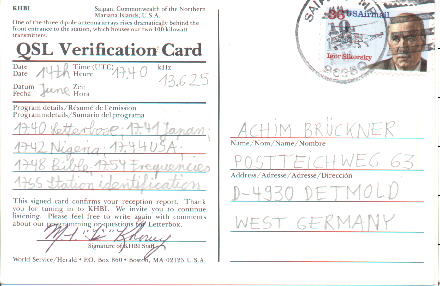 KHBI
Saipan, Commonwealth of the Northern
Mariana Islands, U.S.A.
One of the three dipole antenna arrays rises dramatically behind the
front entrance to the station, which houses our two 100 kilowatt
transmitters.
QSL Verification Card
Date
Date
14th
Time (UTC)
Heure
1740
kHz
13.625
Datum
Fecha
June
Zeit
Hora
Program details/Résumé de l'émission
Programmdetails/Sumario del programa
1740 Letterbox; 1741 Japan;
1742 Nigeria; 1744 USA;
1748 Bible, 1754 Frequencies
1755 Station identification
This signed card confirms your reception report. Thank
you for tuning in to KHBI. We invite you to continue
listening. Please feel free to write again with comments
about our programming or questions for Letterbox.
Signature of KHBI Staff
World Service/Herald • P.O. Box 860 • Boston, MA 02123 U.S.A.
36
USAirmail
Igor Sikorsky
ACHIM BRÜCKNER
Name/Nom/Name/Nombre
POSTTEICHWEG 63
Address/Adresse/Adresse/Dirección
D-4930 DETMOLD
WEST GERMANY